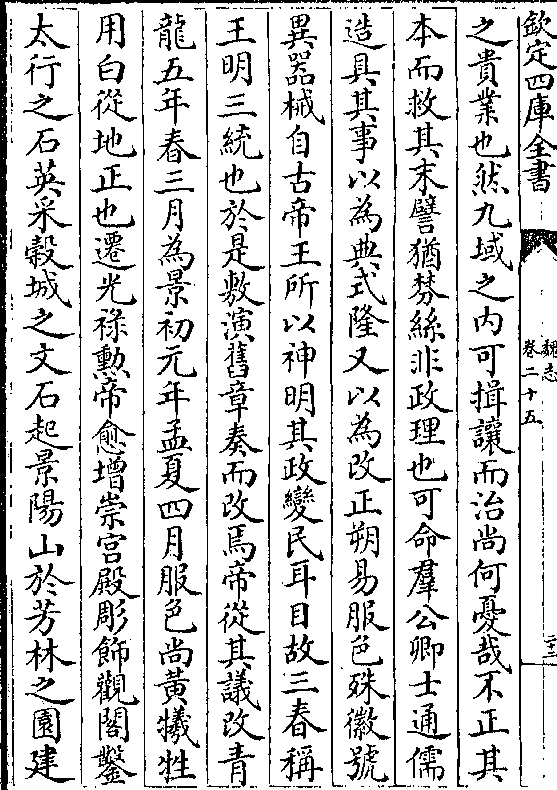 欽定四庫全書
魏志
卷二十五
二十二
之貴業也然九域之内可揖讓而治尚何憂哉不正其
本而救其末譬猶棼絲非政理也可命羣公卿士通儒
造具其事以為典式隆又以為改正朔易服色殊徽號
異器械自古帝王所以神明其政變民耳目故三春稱
王明三統也於是敷演舊章奏而改焉帝從其議改青
龍五年春三月為景初元年孟夏四月服色尚黃犧牲
用白從地正也遷光祿勲帝愈增崇宫殿彫飾觀閣鑿
太行之石英采穀城之文石起景陽山於芳林之園建